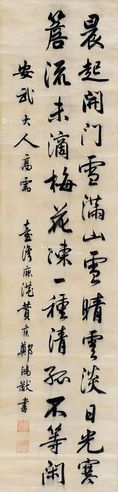 晨起開門雪滿山雪晴雲淡日光寒
簷流未滴梅花凍一種清孤不等閑
安武大人高
臺灣鹿港貢鄭鴻猷書